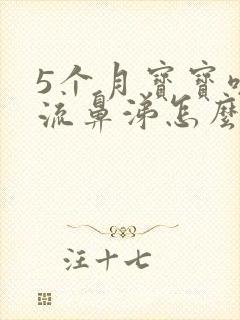 5个月寶寶
流鼻涕怎麼
汪十七